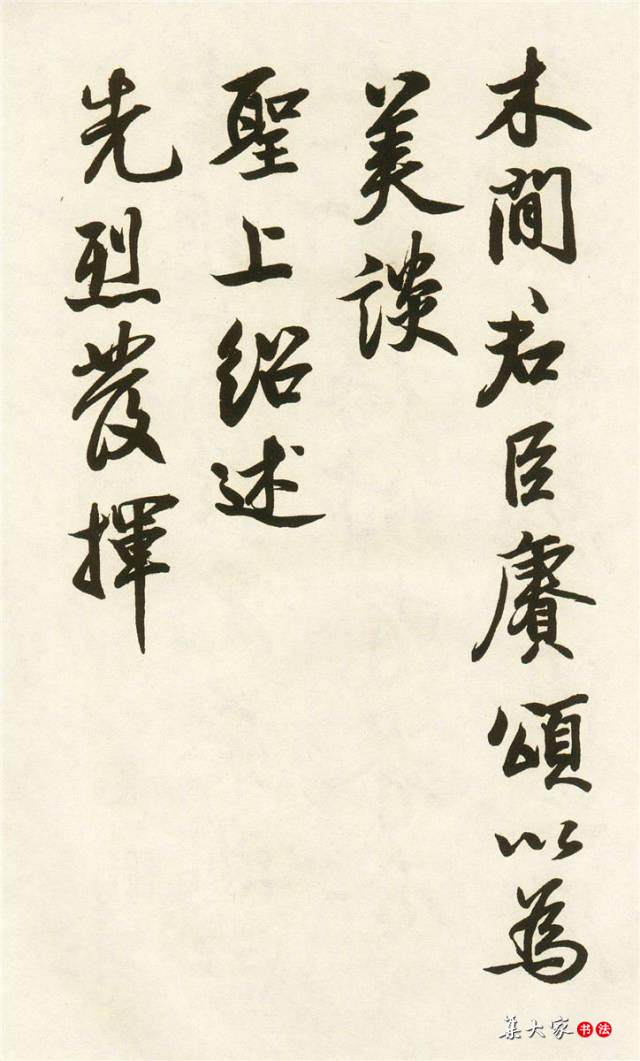 木間君臣賡頌以為
美談
聖上紹述
先烈發揮
集大家书法